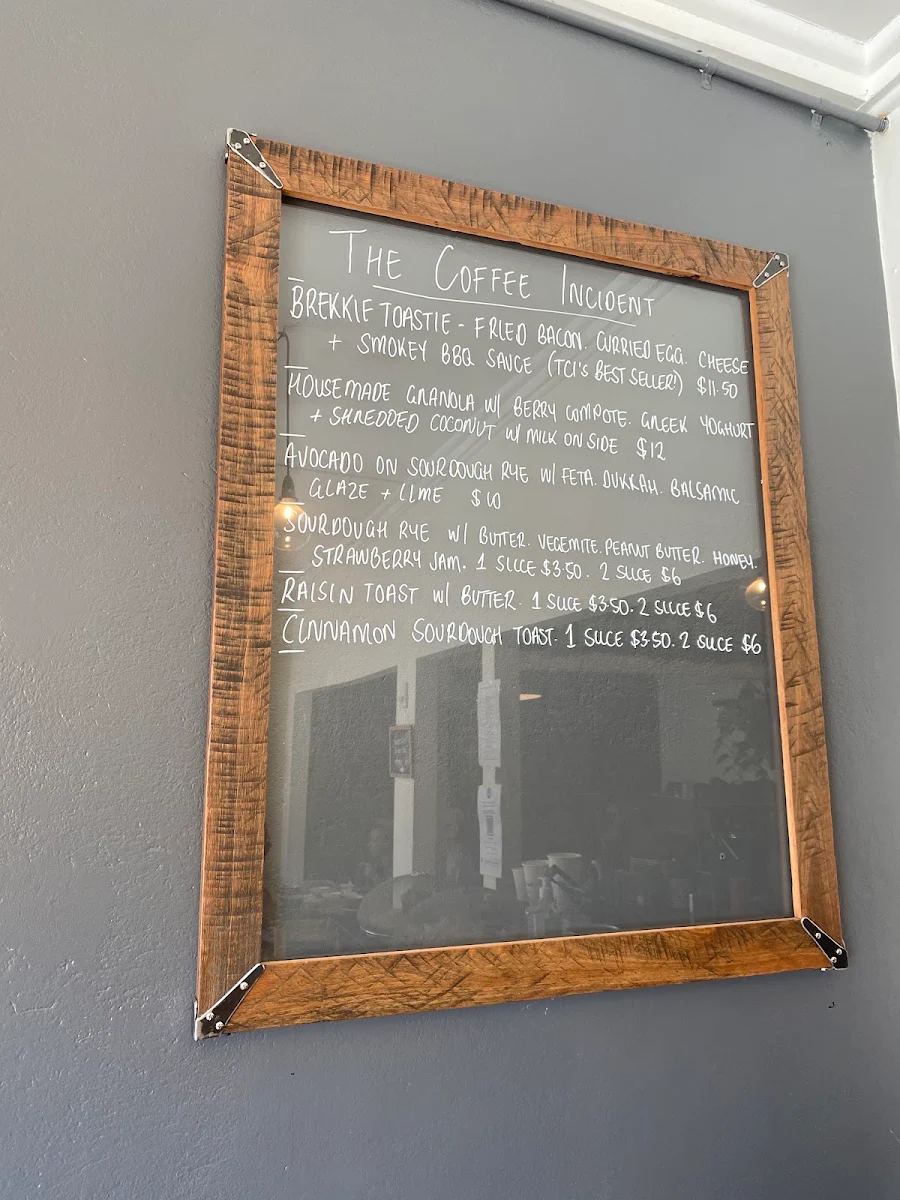 THE COFFEE INCIDENT
BREKKIE TOASTIE - FRIED BACON. CURRIED EGG. CHEESE
+ SMOKEY BBQ SAUCE (TCI'S BEST SELLER!) $11.50
HOUSEMADE GRANOLA W/ BERRY COMPOTE. GREEK YOGHURT
+ SHREDDED COCONUT W/ MILK ON SIDE $12
AVOCADO ON SOURDOUGH RYE W/ FETA. DUKKAH. BALSAMIC
GLAZE + LIME
SOURDOUGH RYE W/ BUTTER. VEGEMITE. PEANUT BUTTER. HONEY.
STRAWBERRY JAM. 1 SLICE $3.50. 2 SLICE $6
RAISIN TOAST W/ BUTTER. 1 SLICE $3.50. 2 SLICE $6
CINNAMON SOURDOUGH TOAST. 1 SLICE $3.50. 2 SLICE $6